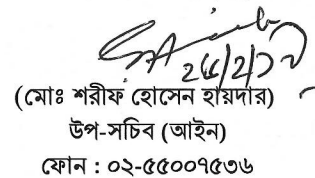 (মোঃ শরীফ হোসেন হায়দার)
উপ-সচিব (আইন)
ফোন : ০২-৫৫০০৭৫৩৬